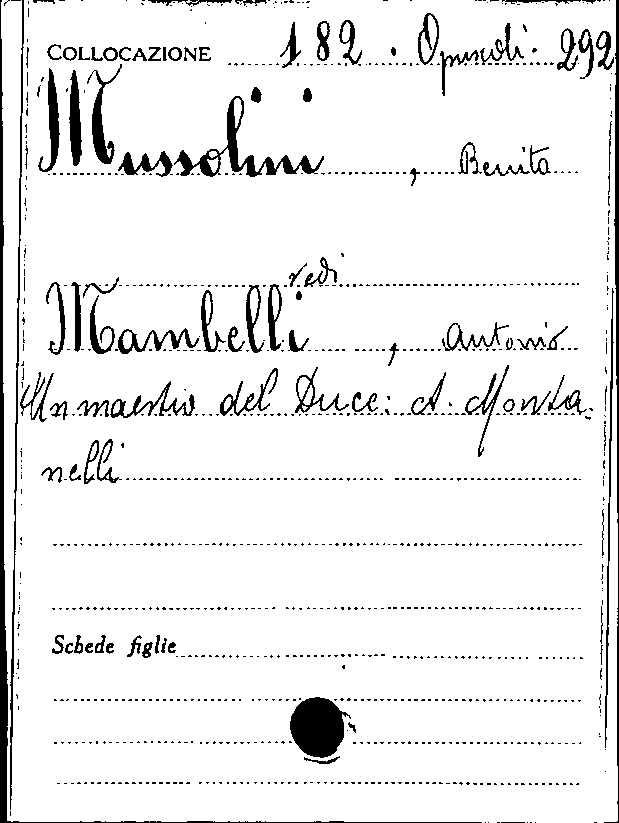 COLLOCAZIONE 182 . Opuscoli . 292
Mussolini , Benito
vedi
Mambelli , Antonio
Un maestro del Duce: A. Monta-
nelli
Schede figlie